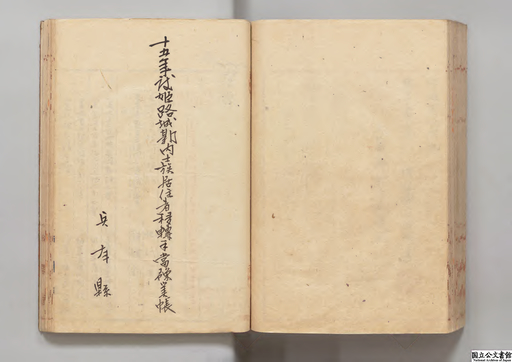 十五年改姫路城郭内士族居住者移轉手當錬業帳
兵庫縣
国立公文書館
National Archives of Japan